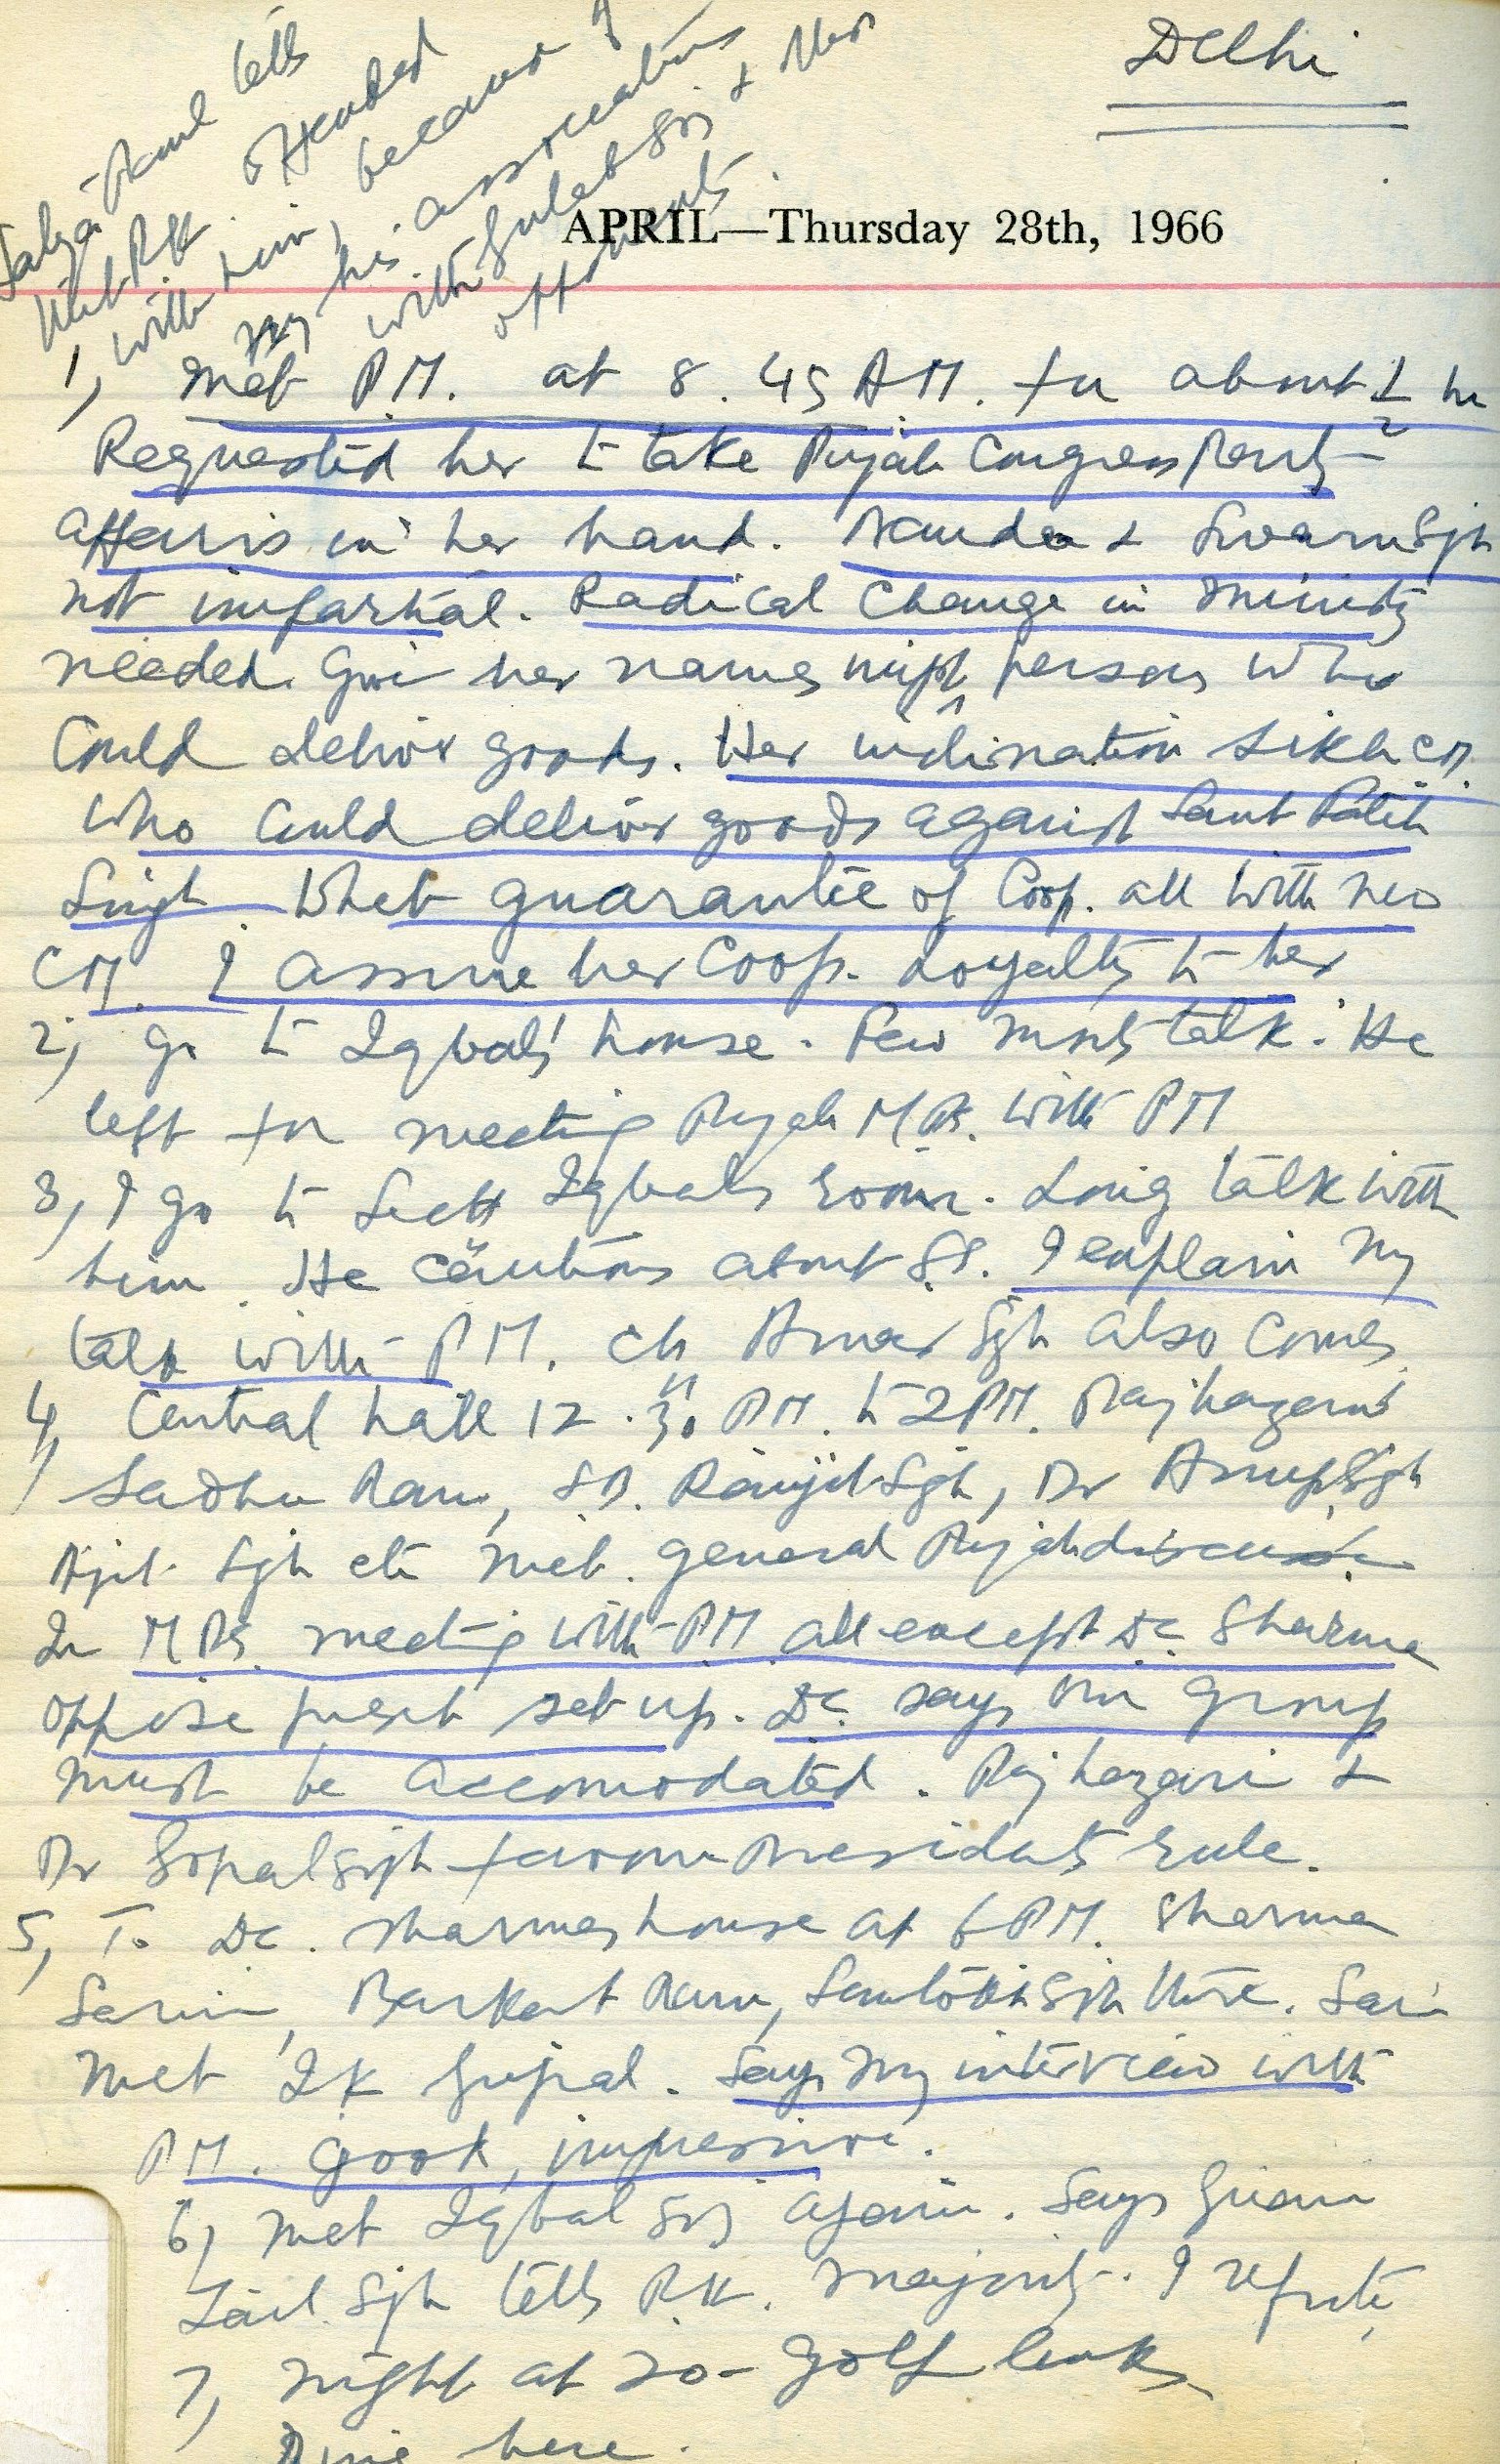 Delhi
Satya Paul tells
that RK offended
with him, because of
my his association
with Gulab Sgh & other
opponents.
APRIL—Thursday 28th, 1966
1, Met P.M. at 8.45 AM. for about ½ hr
Requested her to take Punjab Congress Party
affairs in her hand. Nanda & Swarn Sgh
not impartial. Radical change in ministry
needed. Give her names persons who
could deliver goods. Her inclination Sikh CM.
who could deliver goods against Sant Fateh
Singh. What guarantee of Coop. all with new
CM. I assure her Coop. Loyalty to her
2, go to Iqbal's house. Few mnts talk. He
left for meeting Punjab M.Ps. with PM
3, I go to Iqbal's room. Long talk with
him. He cautions about SS. I explain my
talk with PM. Ch Amar Sgh also comes
4, Central hall 12.30 PM. to 2 PM. Rajhazam
Sadhu Ram, SD. Ranjit Sgh, Dr Anup Sgh
Ajit Sgh etc met. general Punjab discussion
In M.Ps. meeting with PM all except D.C. Sharma
oppose present set up. D.C. says our group
must be accomodated. Raj hazari &
Dr Gopal Sgh favour Presidents rule.
5, To D.C. Sharmas house at 6 PM. Sharma
Sarin, Barkat Ram, Santokh Sgh there. Sarin
met I K Gujral. Says my interview with
PM. good, impressive.
6, met Iqbal Sgh again. Says Giani
Zail Sgh tells R.K. majority. I refute
7, night at 20- golf links
Dine here.